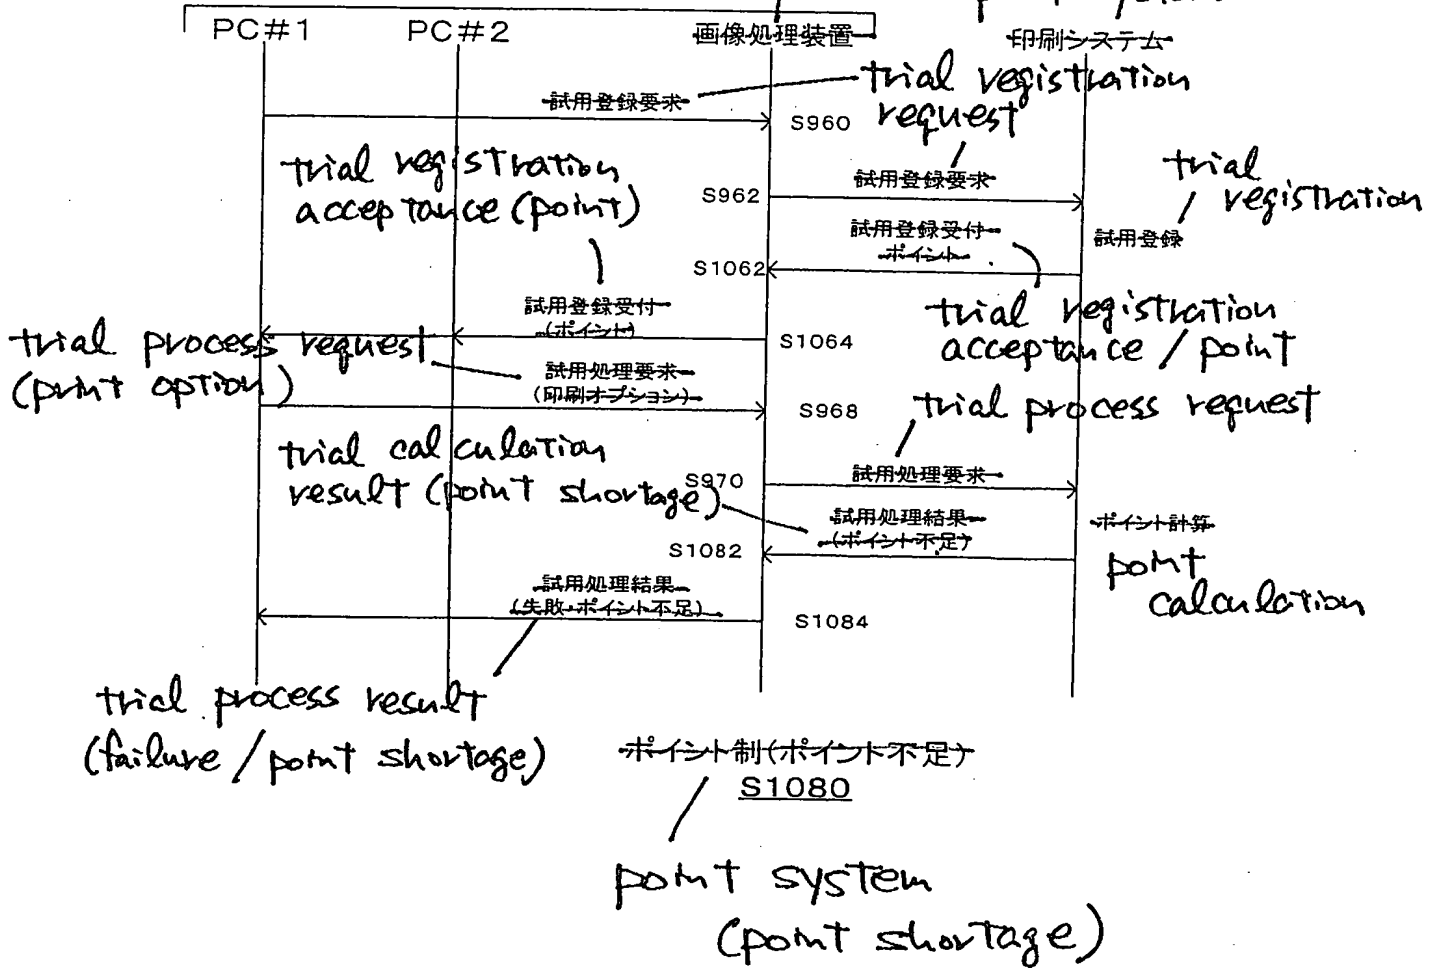 PC#1
PC#2
画像処理装置
印刷システム
試用登録要求
trial registration
request
S960
trial registration
acceptance (point)
S962
試用登録要求
trial
registration
試用登録受付
ポイント
試用登録
S1062
試用登録受付
(ポイント)
trial registration
acceptance / point
S1064
trial process request
(print option)
試用処理要求
(印刷オプション)
S968
trial process request
trial calculation
result (point shortage)
S970
試用処理要求
試用処理結果
(ポイント不足)
ポイント計算
S1082
point
calculation
試用処理結果
(失敗・ポイント不足)
S1084
trial process result
(failure / point shortage)
ポイント制(ポイント不足)
S1080
point system
(point shortage)